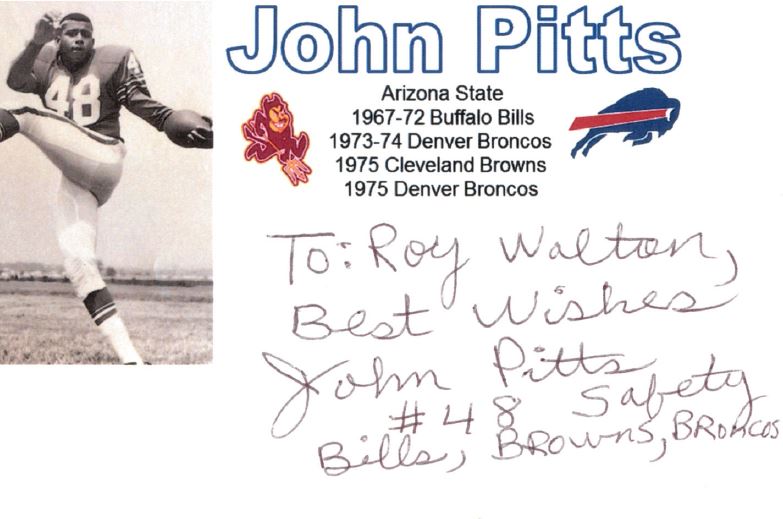 John Pitts
Arizona State
1967-72 Buffalo Bills
1973-74 Denver Broncos
1975 Cleveland Browns
1975 Denver Broncos
48
48
To: Roy Walton,
Best Wishes
John Pitts
#48 Safety
Bills, BROWNS, BRONCOS